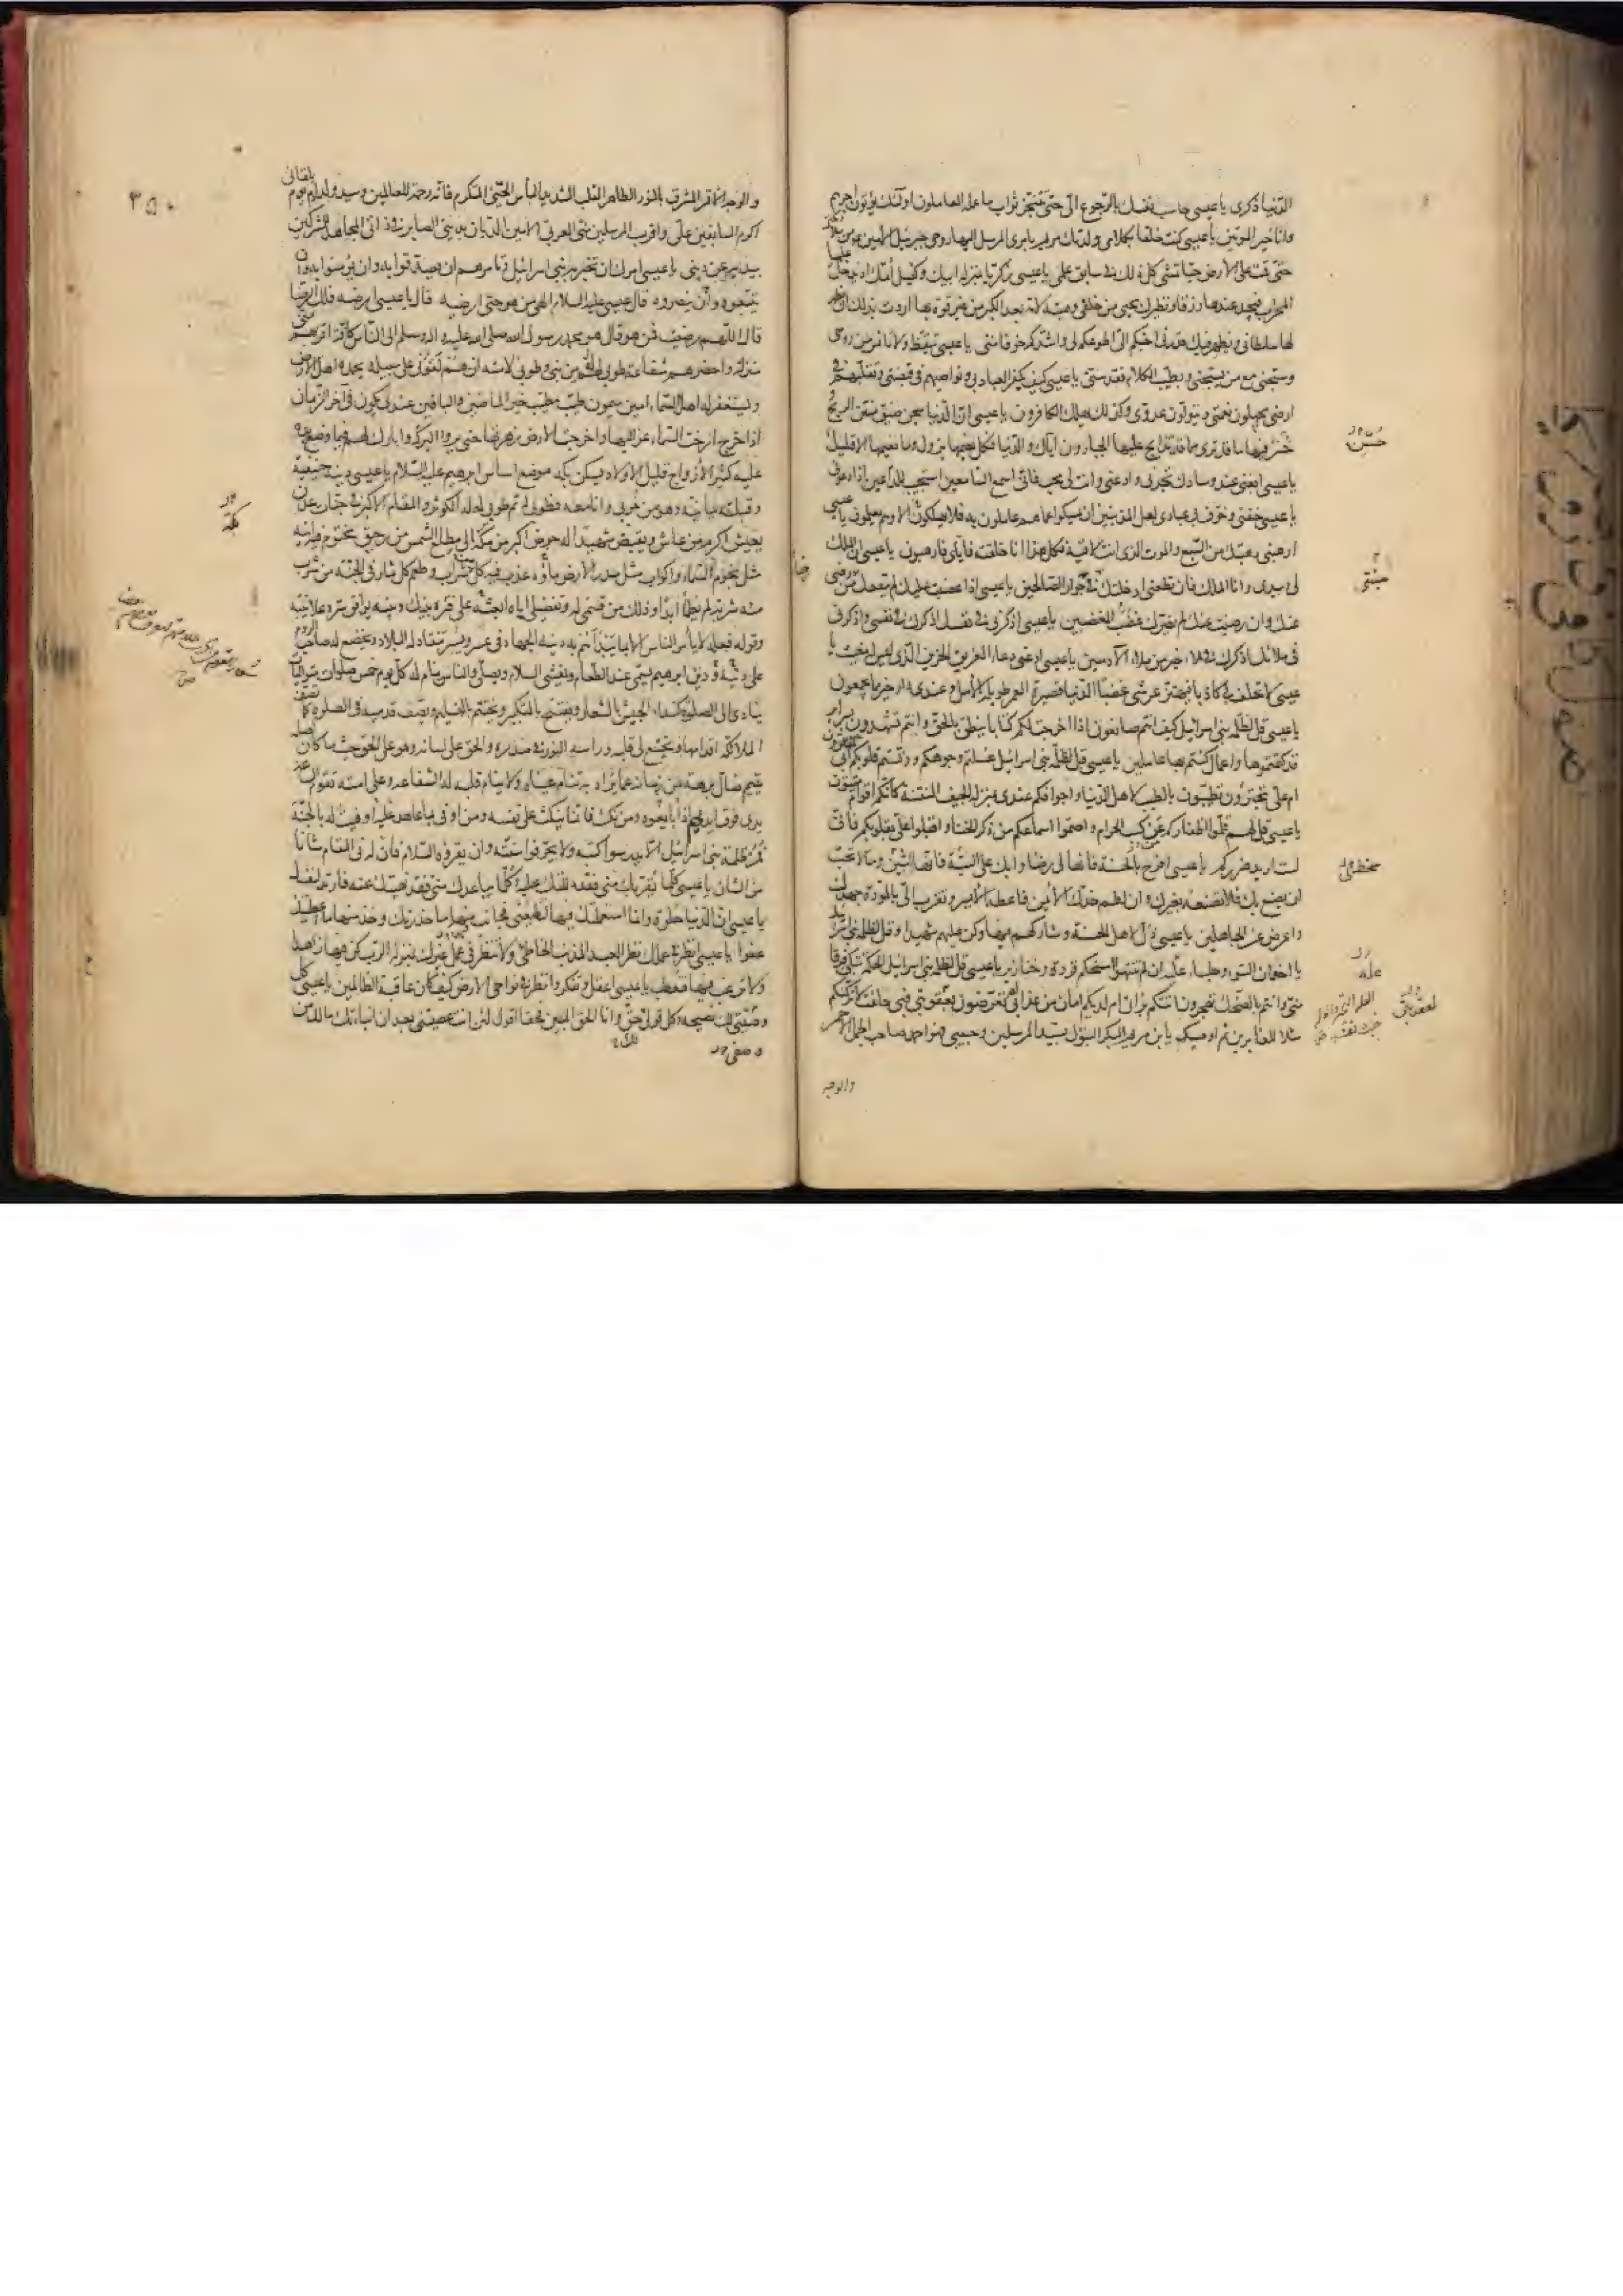 الدنيا ذكرى يا عيسى حاسب نفسك بالرجوع الي حتى تتنجز ثواب ما عمله العاملون اولئك يؤتون اجرهم
وانا خير المؤتين يا عيسى كنت خلقا بكلامي ولدتك مريم بامري المرسل اليها روحي جبرئيل الامين من ملائكتي
حتى قمت على الارض حيا تمشي كل ذلك في سابق علمي يا عيسى زكريا بمنزلة ابيك وكفيل امك اذ يدخل عليها
المحراب فيجد عندها رزقا ونظيرك يحيى من خلقي وهبته لامه بعد الكبر من غير قوة بها اردت بذلك ان يظهر
لها سلطاني ويظهر فيك قدرتي احبكم الي اطوعكم لي واشدكم خوفا مني يا عيسى تيقظ ولا تايس من روحي
وسبحني مع من يسبحني وبطيب الكلام فقدسني يا عيسى كيف يكفر العباد بي ونواصيهم في قبضتي وتقلبهم في
ارضي يجهلون نعمتي ويتولون عدوي وكذلك يهلك الكافرون يا عيسى ان الدنيا سجن ضيق منتن الريح
حسن فيها ما قد ترى مما قد تذابح عليها الجبارون اياك والدنيا فكل نعيمها يزول وما نعيمها الا قليل
يا عيسى ابغني عند وسادك تجدني وادعني وانت لي محب فاني اسمع السامعين استجيب للداعين اذا دعوني
يا عيسى خفني وخوف بي عبادي لعل المذنبين ان يمسكوا عما هم عاملون به فلا يهلكون الا وهم يعلمون يا عيسى
ارهبني رهبتك من السبع والموت الذي انت لاقيه فكل هذا انا خلقته فاياي فارهبون يا عيسى ان الملك
لي وبيدي وانا الملك فان تطعني ادخلتك جنتي في جوار الصالحين يا عيسى ان غضبت عليك لم ينفعك من رضي
عنك وان رضيت عنك لم يضرك غضب المغضبين يا عيسى اذكرني في نفسك اذكرك في نفسي واذكرني
في ملائك اذكرك في ملاء خير من ملاء الادميين يا عيسى ادعني دعاء الغريق الحزين الذي ليس له مغيث يا
عيسى لا تحلف بي كاذبا فيهتز عرشي غضبا الدنيا قصيرة العمر طويلة الامل وعندي دار خير مما يجمعون
يا عيسى قل لظلمة بني اسرائيل كيف انتم صانعون اذا اخرجت لكم كتابا ينطق بالحق وانتم تشهدون بسرائر
قد كتمتموها واعمال كنتم بها عاملين يا عيسى قل لظلمة بني اسرائيل غسلتم وجوهكم ودنستم قلوبكم ابي تغترون
ام علي تجترؤن تطيبون بالطيب لاهل الدنيا واجوافكم عندي بمنزلة الجيف المنتنة كانكم اقوام ميتون
يا عيسى قل لهم قلموا اظفاركم من كسب الحرام واصموا اسماعكم من ذكر الخنا واقبلوا علي بقلوبكم فاني
لست اريد ضرركم يا عيسى افرح بالحسنة فانها لي رضا وابك على السيئة فانها لي شين وما لا تحب
ان يصنع بك فلا تصنعه بغيرك وان لطم خدك الايمن فاعطه الايسر وتقرب الي بالمودة جهدك
واعرض عن الجاهلين يا عيسى ذل لاهل الحسنة وشاركهم فيها وكن عليهم شهيدا وقل لظلمة بني اسرائيل
يا اخدان السوء وجلساء عليه ان لم تنتهوا امسخكم قردة وخنازير يا عيسى قل لظلمة بني اسرائيل الحكمة تبكي فرقا
مني وانتم بالضحك تهجرون اتتكم براتي ام لديكم امان من عذابي ام تعرضون لعقوبتي فبي حلفت لاتركنكم
مثلا للغابرين ثم اوصيك يا ابن مريم البكر البتول بسيد المرسلين وحبيبي فهو احمد صاحب الجمل الاحمر
والوجه
۳۵۰
والوجه الاقمر المشرق بالنور الطاهر القلب الشديد الباس الحيي المتكرم فانه رحمة للعالمين وسيد ولد ادم يوم يلقاني
اكرم السابقين علي واقرب المرسلين مني العربي الامين الديان بديني الصابر في ذاتي المجاهد المشركين
بيده عن ديني يا عيسى امرك ان تخبر به بني اسرائيل وتامرهم ان يصدقوا به وان يؤمنوا به وان
يتبعوه وان ينصروه قال عيسى عليه السلام الهي من هو حتى ارضيه قال يا عيسى ارضه فلك الرضا
قال اللهم رضيت فمن هو قال هو محمد رسول الله صلى الله عليه واله وسلم الى الناس كافة اقربهم مني
منزلة واحضرهم شفاعة طوبى له من نبي وطوبى لامته ان هم لقوني على سبيله يحمده اهل الارض
ويستغفر له اهل السماء امين ميمون طيب مطيب خير الماضين والباقين عندي يكون في اخر الزمان
اذا خرج ارخت السماء عزاليها واخرجت الارض زهرتها حتى يروا البركة وابارك لهم فيما وضع يده
عليه كثير الازواج قليل الاولاد يسكن بكة موضع اساس ابرهيم عليه السلام يا عيسى دينه حنيفية
وقبلته يمانية وهو من حزبي وانا معه فطوبى له ثم طوبى له له الكوثر والمقام الاكبر في جنات عدن
يعيش اكرم من عاش ويقبض شهيدا له حوض اكبر من مكة الى مطلع الشمس من رحيق مختوم فيه انية
مثل نجوم السماء واكواب مثل مدر الارض ماؤه عذب فيه كل شراب وطعم كل ثمار في الجنة من شرب
منه شربة لم يظما ابدا وذلك من قسمي له وتفضيلي اياه ابعثه على فترة بينك وبينه يوافق سره علانيته
وقوله فعله لا يامر الناس الا بما يبدأهم به دينه الجهاد في عسر ويسر تنقاد له البلاد ويخضع له صاحب الروم
على دينه ودين ابرهيم يسمي عند الطعام ويفشي السلام ويصلي والناس نيام له كل يوم خمس صلوات متواليات
ينادي الى الصلوة كنداء الجيش بالشعار ويفتتح بالتكبير ويختتم بالتسليم ويصف قدميه في الصلوة كما تصف
الملائكة اقدامها ويخشع لي قلبه وراسه النور في صدره والحق على لسانه وهو على الحق حيث ما كان
يتيم ضال برهة من زمانه عما يراد به تنام عيناه ولا ينام قلبه له الشفاعة وعلى امته تقوم الساعة
يدي فوق ايديهم اذا بايعوه ومن نكث فانما ينكث على نفسه ومن اوفى بما عاهد عليه اوفيت له بالجنة
فمر ظلمة بني اسرائيل الا يدرسوا كتبه ولا يحرفوا سنته وان يقرؤه السلام فان له في المقام شانا
من الشان يا عيسى كلما يقربك مني فقد دللتك عليه وكلما يباعدك مني فقد نهيتك عنه فارتد لنفسك
يا عيسى ان الدنيا حلوة وانما استعملتك فيها لتطيعني فجانب منها ما حذرتك وخذ منها ما اعطيتك
عفوا يا عيسى انظر في عملك نظر العبد المذنب الخاطئ ولا تنظر في عمل غيرك بمنزلة الرب كن فيها زاهدا
ولا ترغب فيها فتعطب يا عيسى اعقل وتفكر وانظر في نواحي الارض كيف كان عاقبة الظالمين يا عيسى كل
وصيتي لك نصيحة وكل قولي حق وانا الحق المبين فحقا اقول لئن انت عصيتني بعد ان انباتك ما لك من